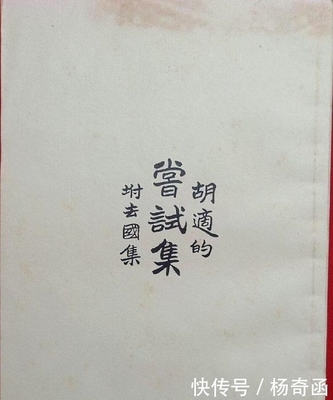 胡適的
嘗試集
坿去國集
快传号／杨奇函